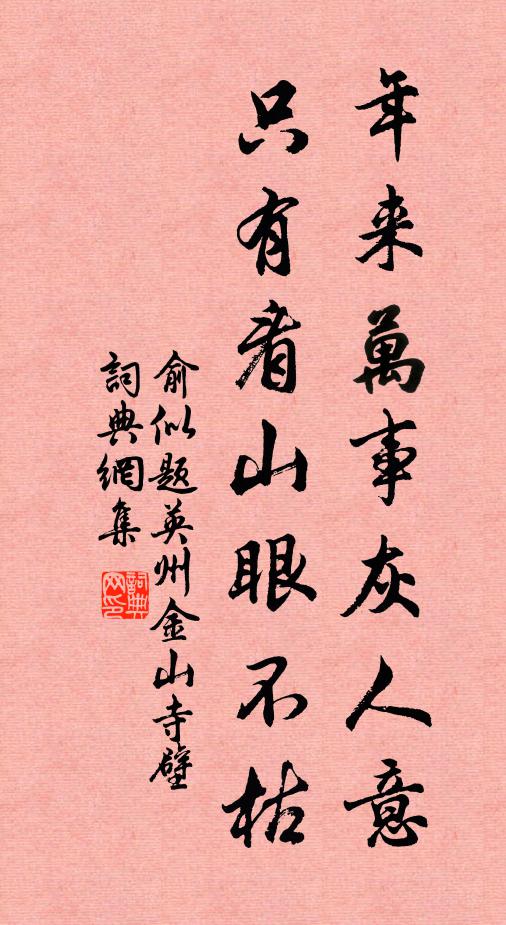 年来萬事灰人意
只有看山眼不枯
俞似题英州金山寺壁
詞典網集
詞典网印